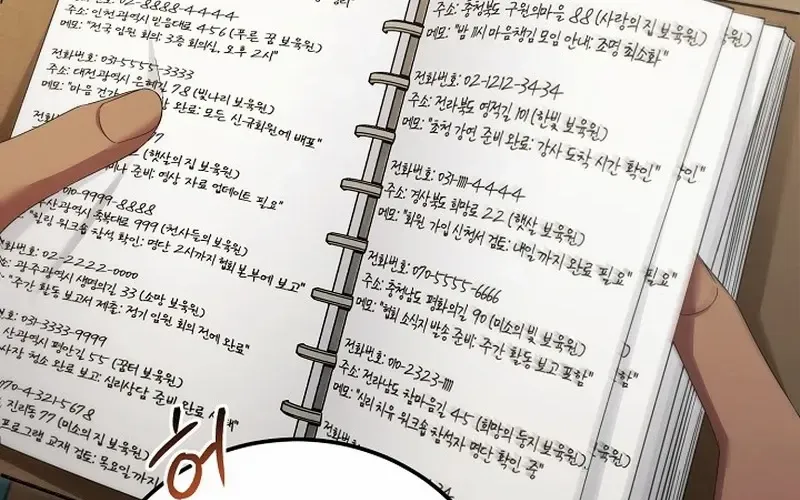 전화번호: 02-8888-4444
주소: 인천광역시 믿음대로 456 (푸른 꿈 보육원)
메모: "전국 임원 회의: 3층 회의실, 오후 2시"
전화번호: 031-5555-3333
주소: 대전광역시 은혜길 78 (빛나리 보육원)
메모: "마음 건강 완료: 모든 신규회원에 배포"
77
(햇살의 집 보육원)
준비: 영상 자료 업데이트 필요"
010-9999-8888
축복대로 999 (천사들의 보육원)
"힐링 워크숍 참석 확인: 명단 2시까지 협회 본부에 보고"
번호: 02-2222-0000
광주광역시 생명의길 33 (소망 보육원)
"주간 활동 보고서 제출: 정기 임원 회의 전에 완료"
번호: 031-3333-9999
산광역시 평안길 55 (꿈터 보육원)
사장 청소 완료 보고: 심리상담 준비 완료
070-4321-5678
진리동 77 (미소의 집 보육원)
프로그램 교재 검토: 목요일까지
주소: 충청북도 구원의마을 88 (사랑의 집 보육원)
메모: "밤 11시 마음챙김 모임 안내: 조명 최소화"
전화번호: 02-1212-3434
주소: 전라북도 영적길 101 (한빛 보육원)
메모: "초청 강연 준비 완료: 강사 도착 시간 확인"
전화번호: 031-1111-4444
주소: 경상북도 희망로 22 (햇살 보육원)
메모: "회원 가입 신청서 검토: 내일까지 완료 필요"
전화번호: 070-5555-6666
주소: 충청남도 평화의길 90 (미소의 빛 보육원)
메모: "협회 소식지 발송 준비: 주간 활동 보고 포함"
전화번호: 010-2323-1111
주소: 전라남도 참마음길 45 (희망의 둥지 보육원)
메모: "심리 치유 워크숍 참석자 명단 확인 중"
전화번호
보육원)
확인"
필요"
함"
육원)
허